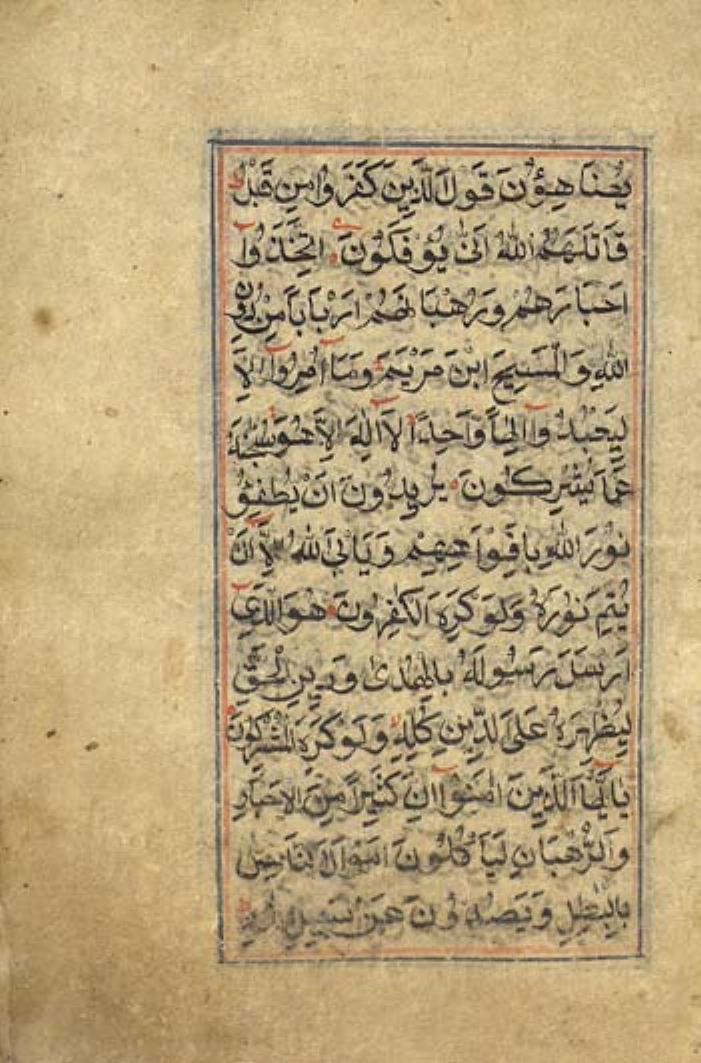 يُضَاهِؤُنَ قَوْلَ الَّذِينَ كَفَرُوا مِنْ قَبْلُ
قَاتَلَهُمُ اللّٰهُ اَنّٰى يُؤْفَكُونَ اتَّخَذُوا
اَحْبَارَهُمْ وَرُهْبَانَهُمْ اَرْبَابًا مِنْ دُونِ
اللّٰهِ وَالْمَسِيحَ ابْنَ مَرْيَمَ وَمَا اُمِرُوا اِلَّا
لِيَعْبُدُوا اِلٰهًا وَاحِدًا لَا اِلٰهَ اِلَّا هُوَ سُبْحٰنَهُ
عَمَّا يُشْرِكُونَ يُرِيدُونَ اَنْ يُطْفِؤُ
نُورَ اللّٰهِ بِاَفْوَاهِهِمْ وَيَاْبَى اللّٰهُ اِلَّا اَنْ
يُتِمَّ نُورَهُ وَلَوْ كَرِهَ الْكٰفِرُونَ هُوَ الَّذِي
اَرْسَلَ رَسُولَهُ بِالْهُدٰى وَدِينِ الْحَقِّ
لِيُظْهِرَهُ عَلَى الدِّينِ كُلِّهِ وَلَوْ كَرِهَ الْمُشْرِكُونَ
يٰاَيُّهَا الَّذِينَ اٰمَنُوا اِنَّ كَثِيرًا مِنَ الْاَحْبَارِ
وَالرُّهْبَانِ لَيَاْكُلُونَ اَمْوَالَ النَّاسِ
بِالْبٰطِلِ وَيَصُدُّونَ عَنْ سَبِيلِ اللّٰهِ